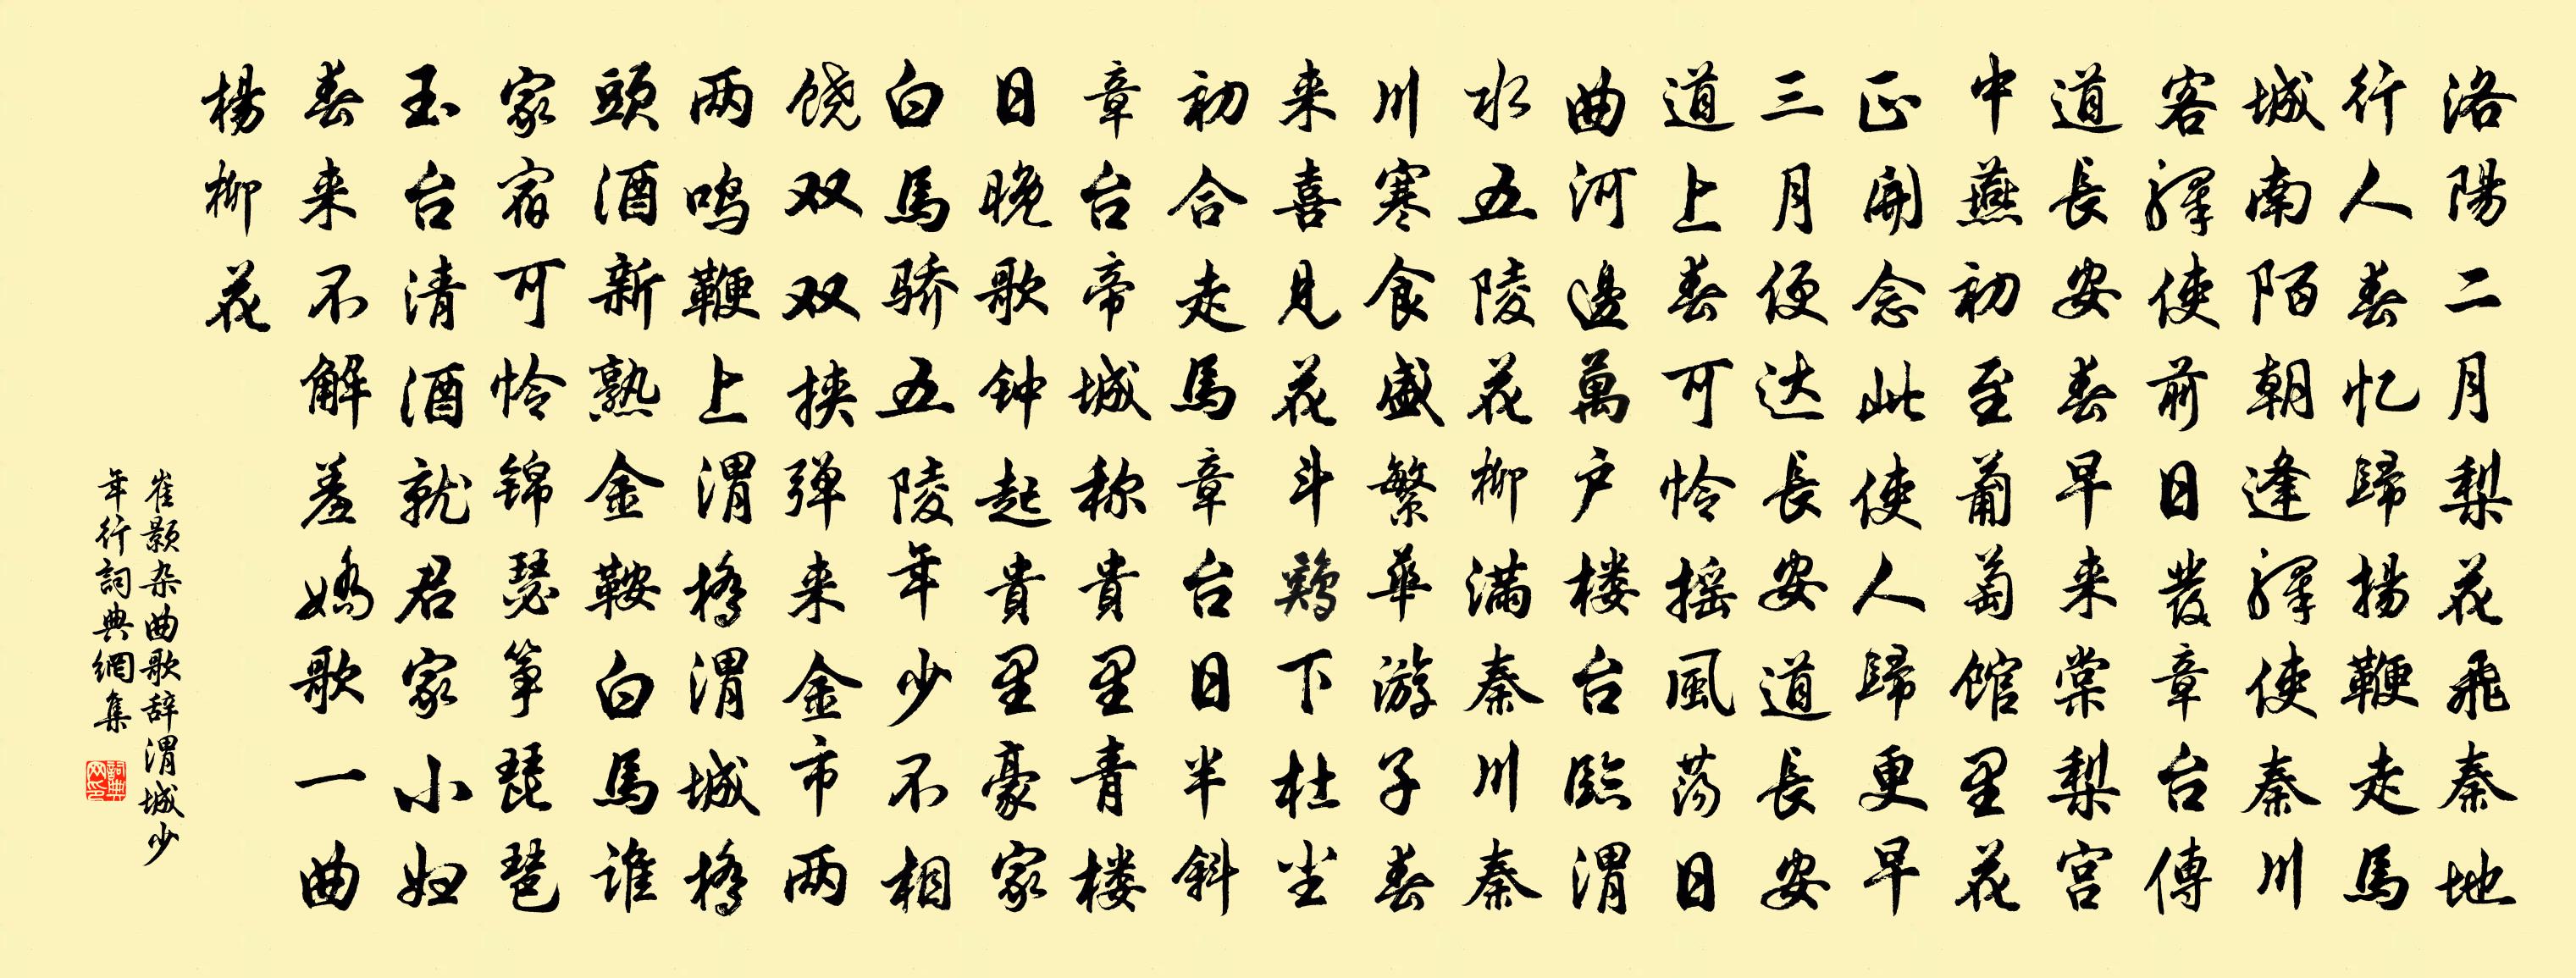 洛陽二月梨花飛秦地
行人春忆歸揚鞭走馬
城南陌朝逢驛使秦川
客驛使前日發章台傳
道長安春早来棠梨宫
中燕初至葡萄馆里花
正開念此使人歸更早
三月便达長安道長安
道上春可怜摇風荡日
曲河邊萬户楼台臨渭
水五陵花柳满秦川秦
川寒食盛繁華游子春
来喜見花斗鷄下杜尘
初合走馬章台日半斜
章台帝城称貴里青楼
日晚歌钟起貴里豪家
白馬骄五陵年少不相
饶双双挟弹来金市两
两鸣鞭上渭橋渭城橋
頭酒新熟金鞍白馬谁
家宿可怜锦瑟筝琵琶
玉台清酒就君家小妇
春来不解羞嬌歌一曲
楊柳花
崔颢杂曲歌辞渭城少
年行詞典網集
詞典网印